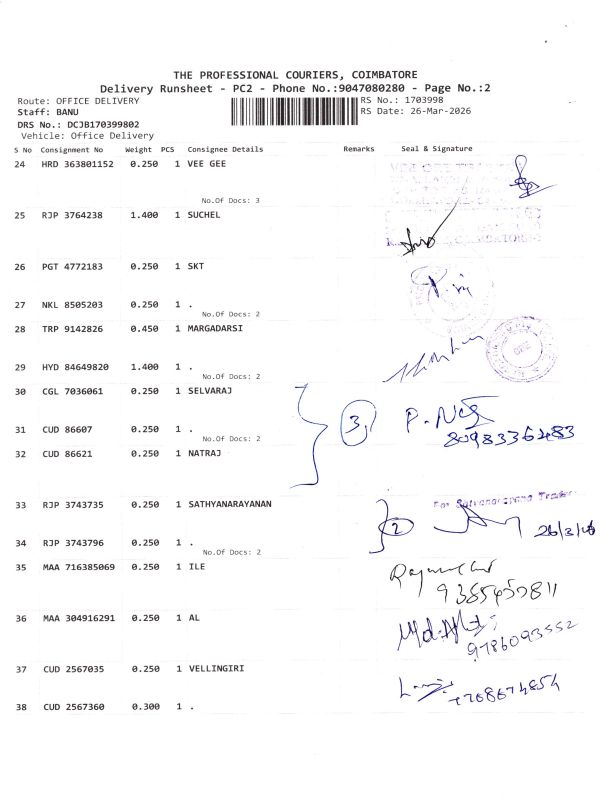 THE PROFESSIONAL COURIERS, COIMBATORE
Delivery Runsheet - PC2 - Phone No.:9047080280 - Page No.:2
Route: OFFICE DELIVERY RS No.: 1703998
Staff: BANU RS Date: 26-Mar-2026
DRS No.: DCJB170399802
Vehicle: Office Delivery
S No Consignment No Weight PCS Consignee Details Remarks Seal & Signature
24 HRD 363801152 0.250 1 VEE GEE
No.Of Docs: 3
25 RJP 3764238 1.400 1 SUCHEL
26 PGT 4772183 0.250 1 SKT
27 NKL 8505203 0.250 1 .
No.Of Docs: 2
28 TRP 9142826 0.450 1 MARGADARSI
29 HYD 84649820 1.400 1 .
No.Of Docs: 2
30 CGL 7036061 0.250 1 SELVARAJ
3
31 CUD 86607 0.250 1 .
No.Of Docs: 2
32 CUD 86621 0.250 1 NATRAJ
33 RJP 3743735 0.250 1 SATHYANARAYANAN
For Satyanarayana
2 26/3/26
34 RJP 3743796 0.250 1 .
No.Of Docs: 2
35 MAA 716385069 0.250 1 ILE
36 MAA 304916291 0.250 1 AL
9786093552
37 CUD 2567035 0.250 1 VELLINGIRI
38 CUD 2567360 0.300 1 .